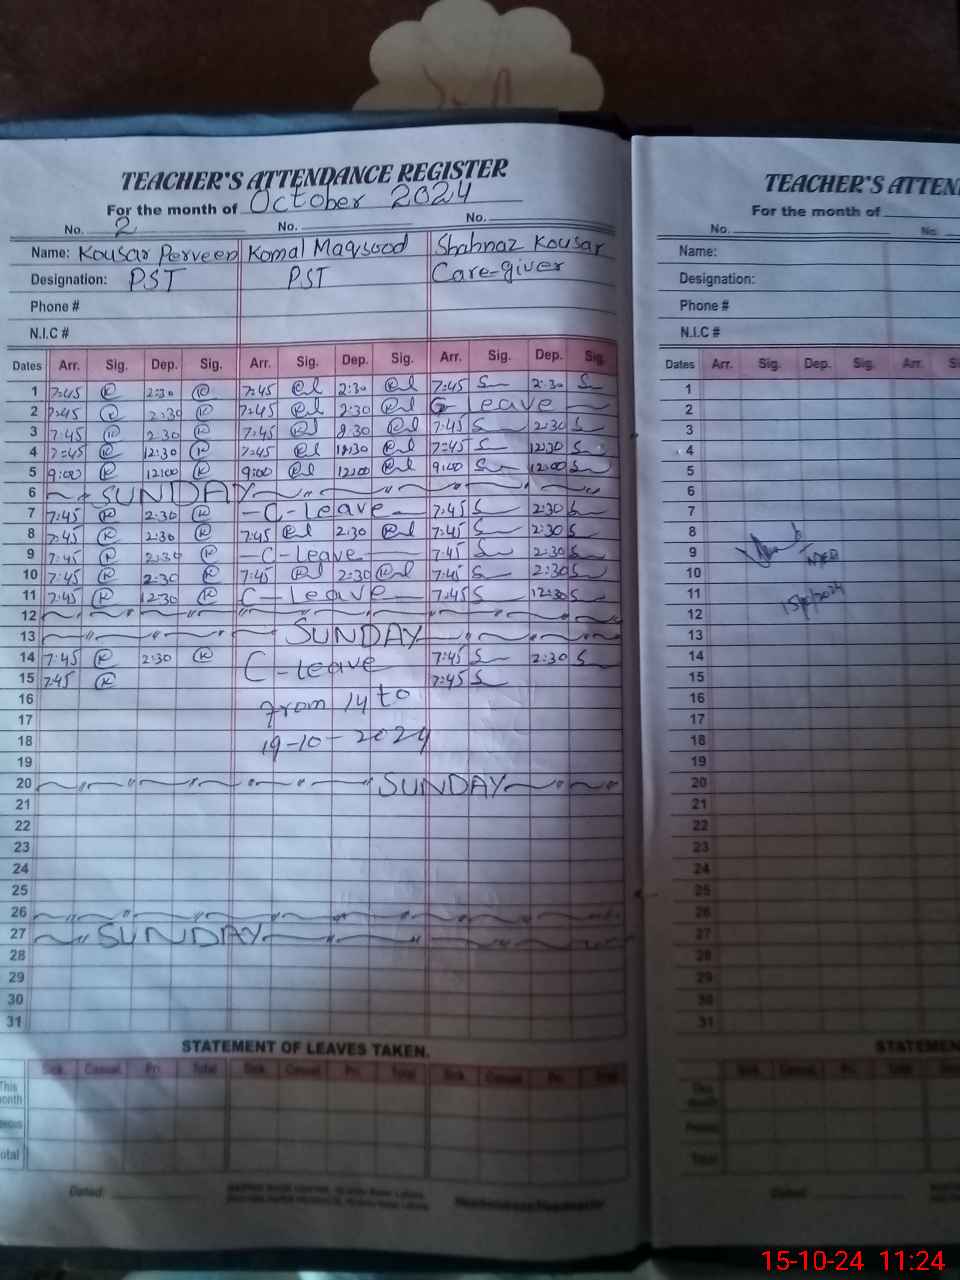 TEACHER'S ATTENDANCE REGISTER
For the month of October 2024
No. 2 No. No.
Name: Kousar Perveen Komal Maqsood Shahnaz Kousar
Designation: PST PST Care-giver
Phone #
N.I.C #
Dates Arr. Sig. Dep. Sig. Arr. Sig. Dep. Sig. Arr. Sig. Dep. Sig.
1 7:45 2:30 7:45 2:30 7:45 2:30
2 7:45 2:30 7:45 2:30 Leave
3 7:45 2:30 7:45 2:30 7:45 2:30
4 7:45 12:30 7:45 12:30 7:45 12:30
5 9:00 12:00 9:00 12:00 9:00 12:00
6 SUNDAY
7 7:45 2:30 C-Leave 7:45 2:30
8 7:45 2:30 7:45 2:30 7:45 2:30
9 7:45 2:30 C-Leave 7:45 2:30
10 7:45 2:30 7:45 2:30 7:45 2:30
11 7:45 12:30 C-Leave 7:45 12:30
12
13 SUNDAY
14 7:45 2:30 C-Leave 7:45 2:30
15 7:45 7:45
16 From 14 to
17
18 19-10-2024
19
20 SUNDAY
21
22
23
24
25
26
27 SUNDAY
28
29
30
31
STATEMENT OF LEAVES TAKEN.
Sick. Casual. Pri. Total Sick. Casual. Pri. Total Sick. Casual. Pri. Total
This
month
Total
Dated:
TEACHER'S ATTEN
For the month of
No. No.
Name:
Designation:
Phone #
N.I.C #
Dates Arr. Sig. Dep. Sig. Arr.
1
2
3
4
5
6
7
8
9
10
11
12
13
14
15
16
17
18
19
20
21
22
23
24
25
26
27
28
29
30
31
STATEMEN
Sick. Casual. Pri. Total
This
month
Total
Dated:
15-10-24 11:24